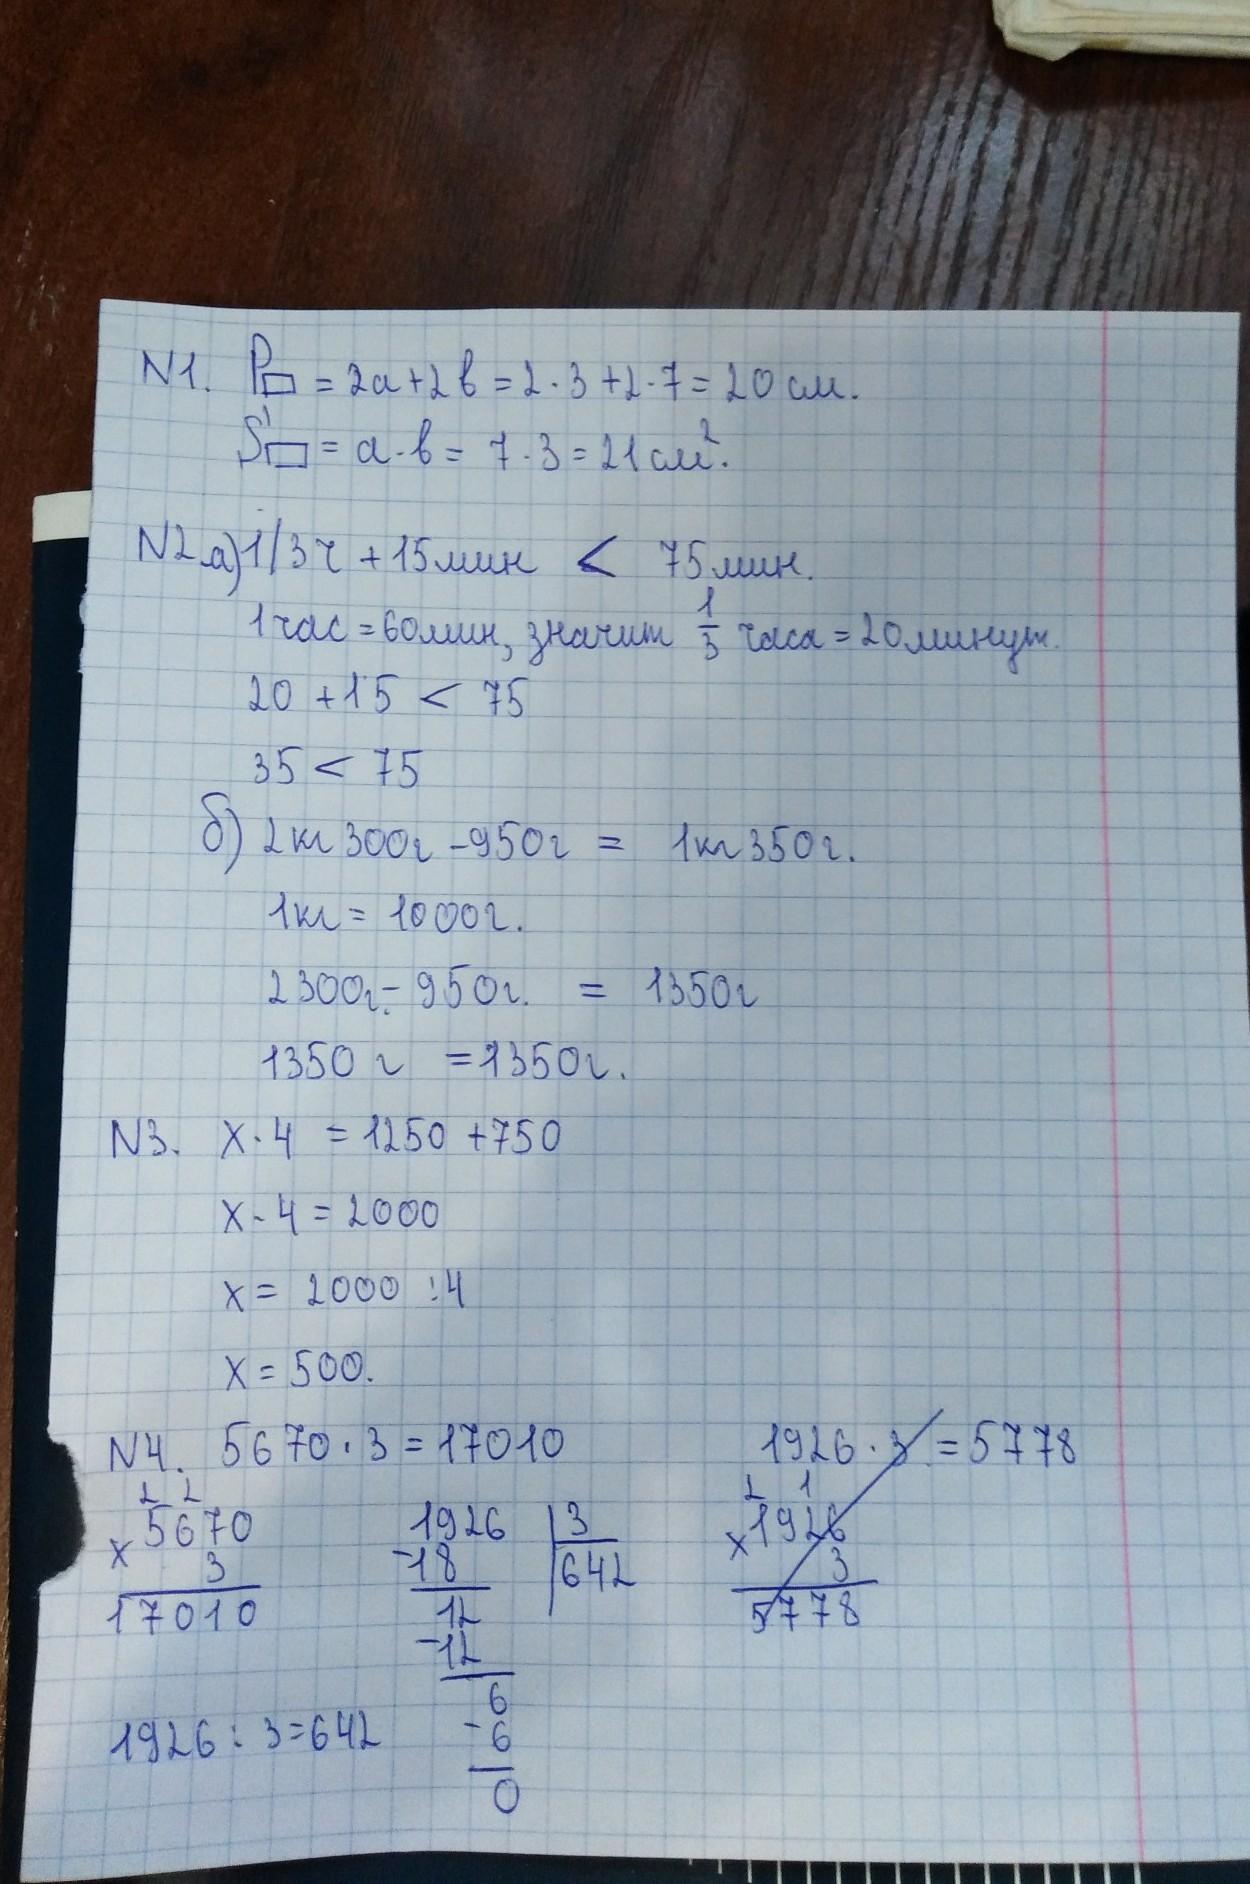 N1. P▭ = 2a+2b = 2·3+2·7 = 20 см.
S▭ = a·b = 7·3 = 21 см².
N2 а) 1/3 ч + 15 мин < 75 мин.
1 час = 60 мин, значит 1/3 часа = 20 минут.
20 + 15 < 75
35 < 75
б) 2 кг 300 г - 950 г = 1 кг 350 г.
1 кг = 1000 г.
2300 г. - 950 г. = 1350 г
1350 г = 1350 г.
N3. x·4 = 1250 + 750
x·4 = 2000
x = 2000 :4
x = 500.
N4. 5670·3 = 17010
2 2
×5670
3
17010
1926 | 3
-18 | 642
12
-12
6
-6
0
1926·3 = 5778
2 1
×1926
3
5778
1926 : 3 = 642